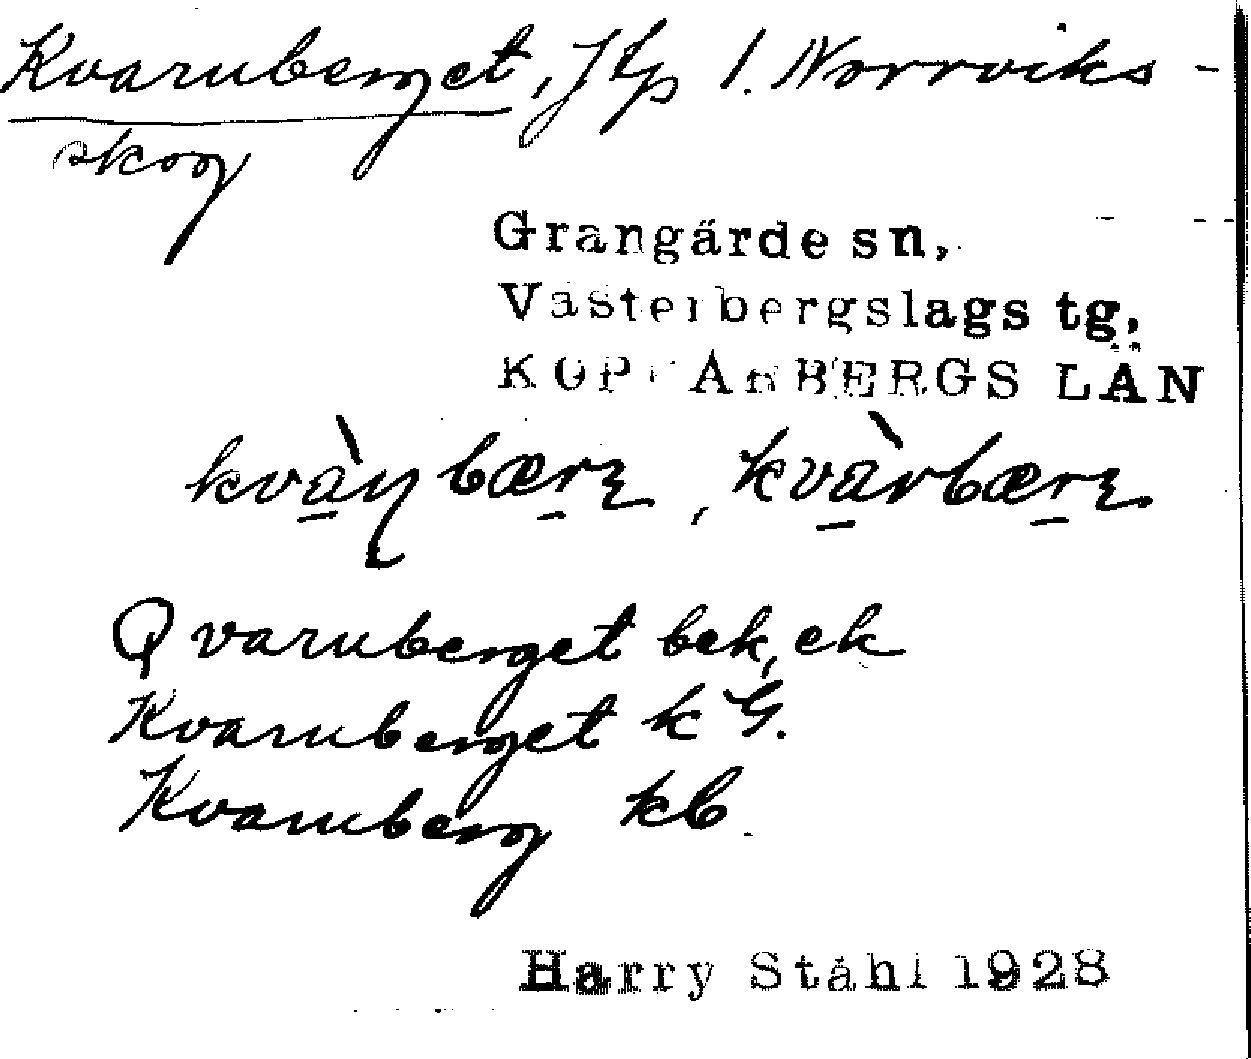 Kvarnberget, Jtp l. Norrviks-
skog
Grangärde sn,
Västerbergslags tg,
KOPPARBERGS LÄN
kvàɳbærɛ, kvàrbærɛ
Qvarnberget bek, ek
Kvarnberget k G.
Kvarnberg kb
Harry Ståhl 1928